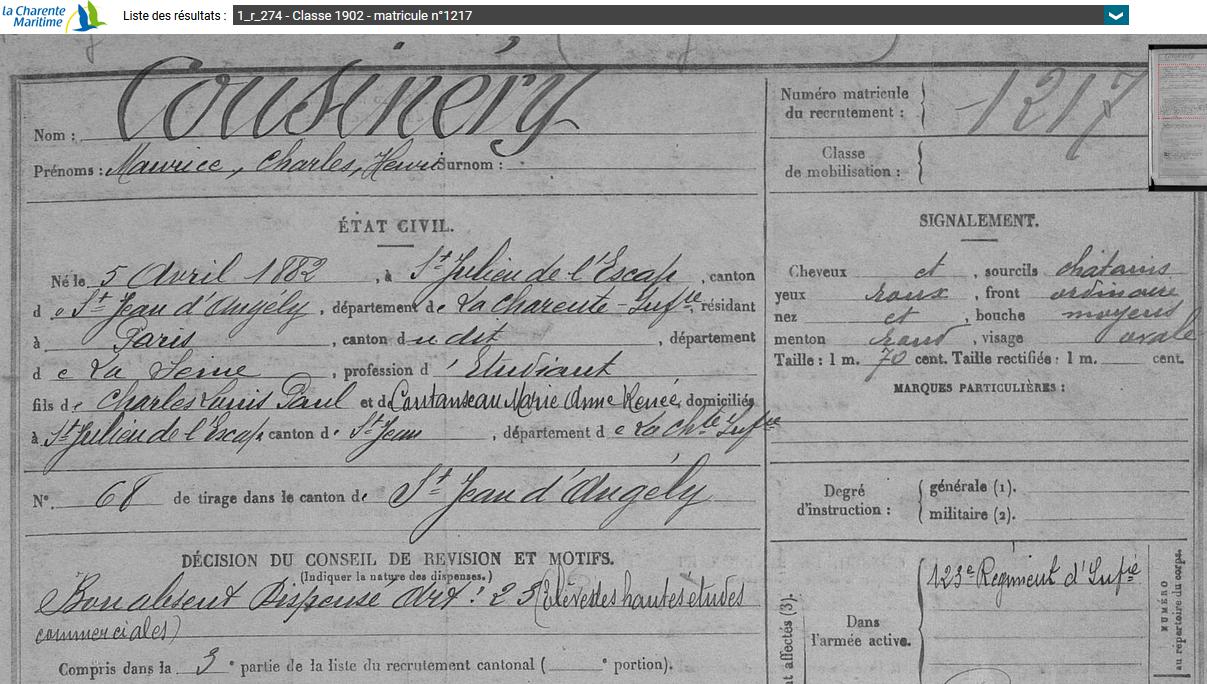 la Charente
Maritime
Liste des résultats : 1_r_274 - Classe 1902 - matricule n°1217
Nom : Cousinery
Prénoms : Maurice, Charles, Henri Surnom :
Numéro matricule
du recrutement : 1217
Classe
de mobilisation :
ÉTAT CIVIL.
Né le 5 Avril 1882, à St Julien de l'Escap, canton
de St Jean d'Angely, département de La Charente-Infre, résidant
à Paris, canton du dit, département
de La Seine, profession d'Etudiant
fils de Charles Louis Paul et de Coutanseau Marie Anne Renée, domiciliés
à St Julien de l'Escap canton de St Jean, département de La Chte Infre
N° 68 de tirage dans le canton de St Jean d'Angély
DÉCISION DU CONSEIL DE REVISION ET MOTIFS.
(Indiquer la nature des dispenses.)
Bon absent Dispensé art: 23 (Elève des hautes etudes
commerciales)
Compris dans la 3e partie de la liste du recrutement cantonal ( e portion).
SIGNALEMENT.
Cheveux et, sourcils châtains
yeux roux, front ordinaire
nez et, bouche moyens
menton rond, visage ovale
Taille : 1 m. 70 cent. Taille rectifiée : 1 m. cent.
MARQUES PARTICULIÈRES :
Degré
d'instruction :
générale (1).
militaire (2).
Dans
l'armée active.
123e Regiment d'Infie
NUMÉRO
au répertoire du corps.
nt affectés (3).